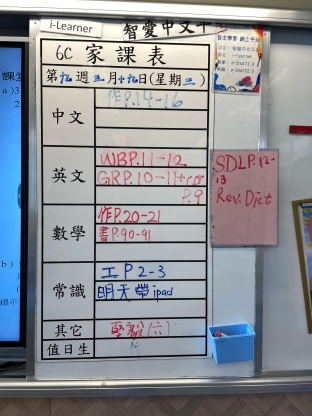 i-Learner
智愛中文平
6C 家課表
第九週三月十九日(星期三)
中文
作P.14-16
英文
WBP.11-12
GRP.10-11+cor
P.9
SDLP.12-
13
Rev. Dict
數學
作P.20-21
書P.90-91
常識
工P2-3
明天帶ipad
其它
堅毅(六)
值日生